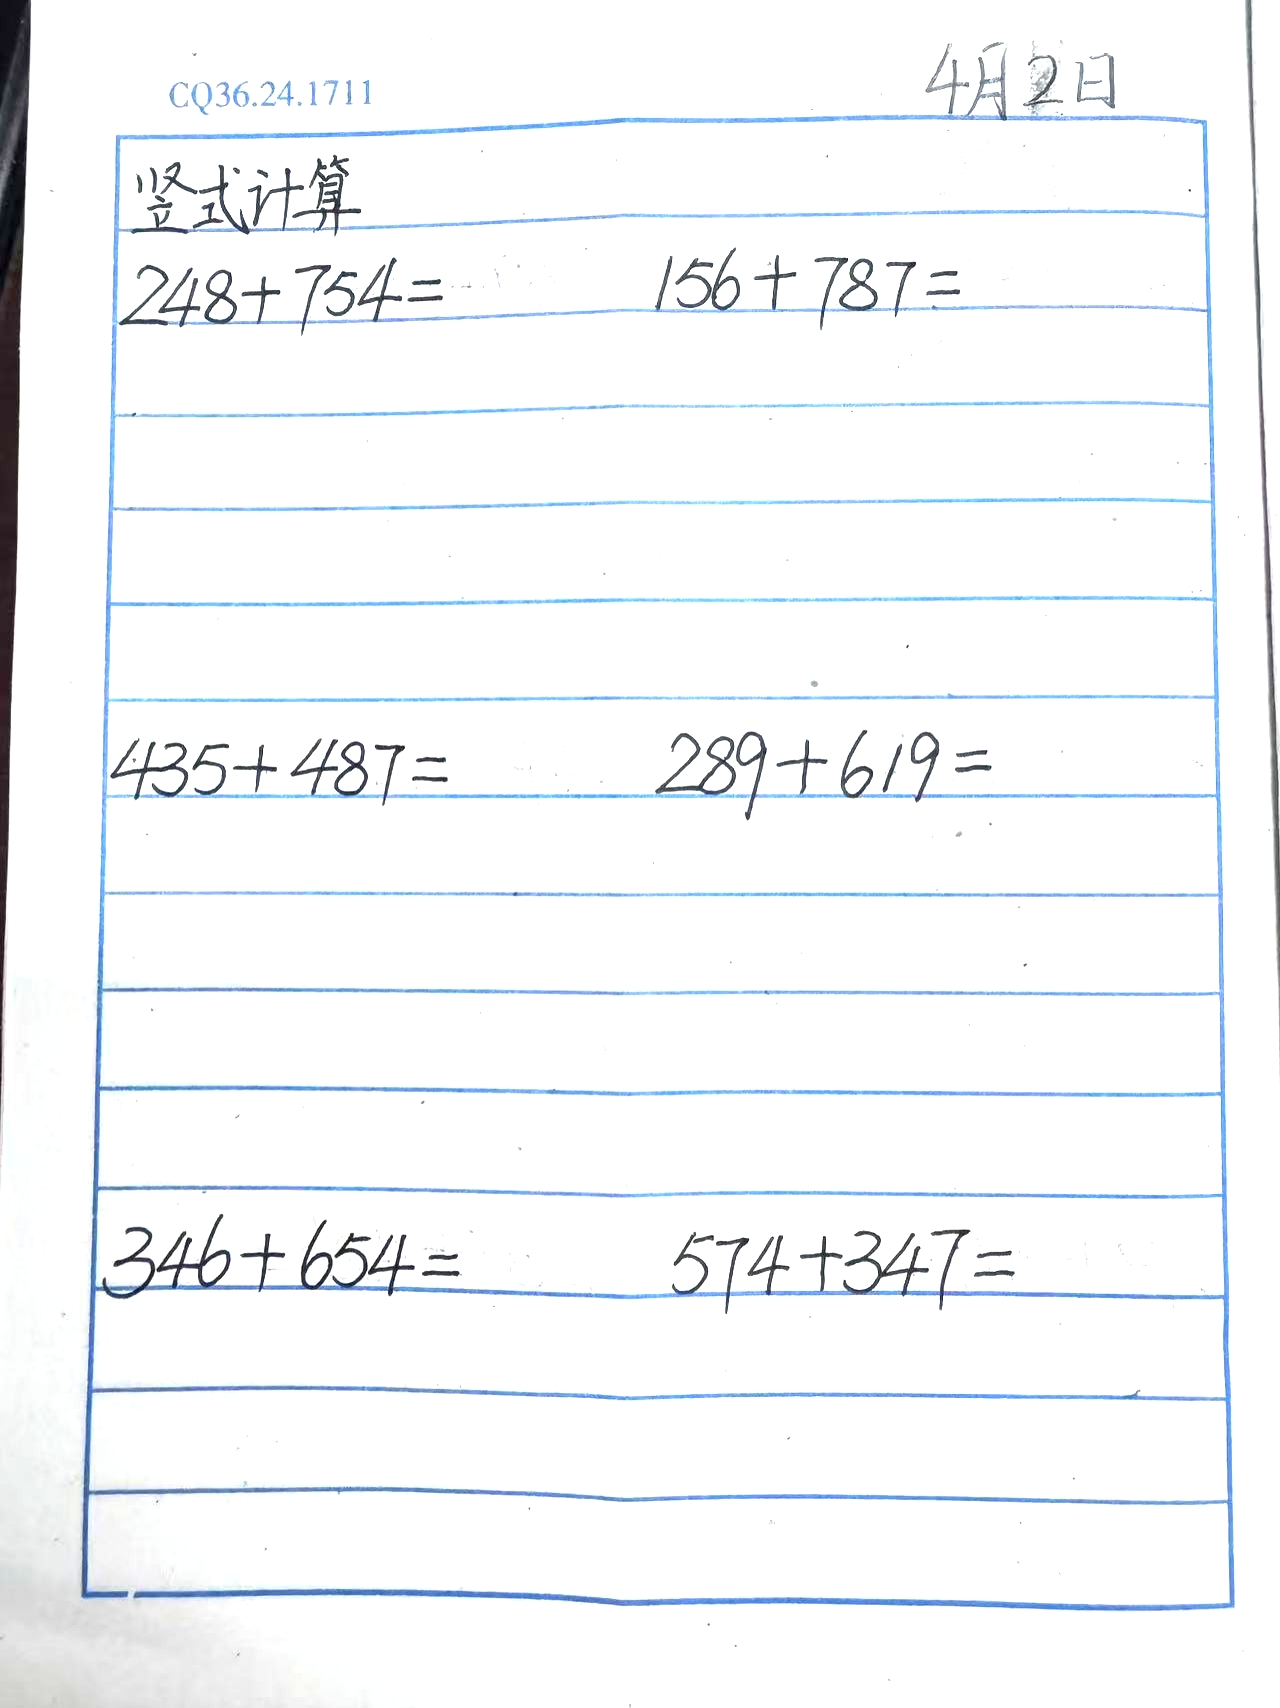 CQ36.24.1711 4月2日
竖式计算
248+754= 156+787=
435+487= 289+619=
346+654= 574+347=